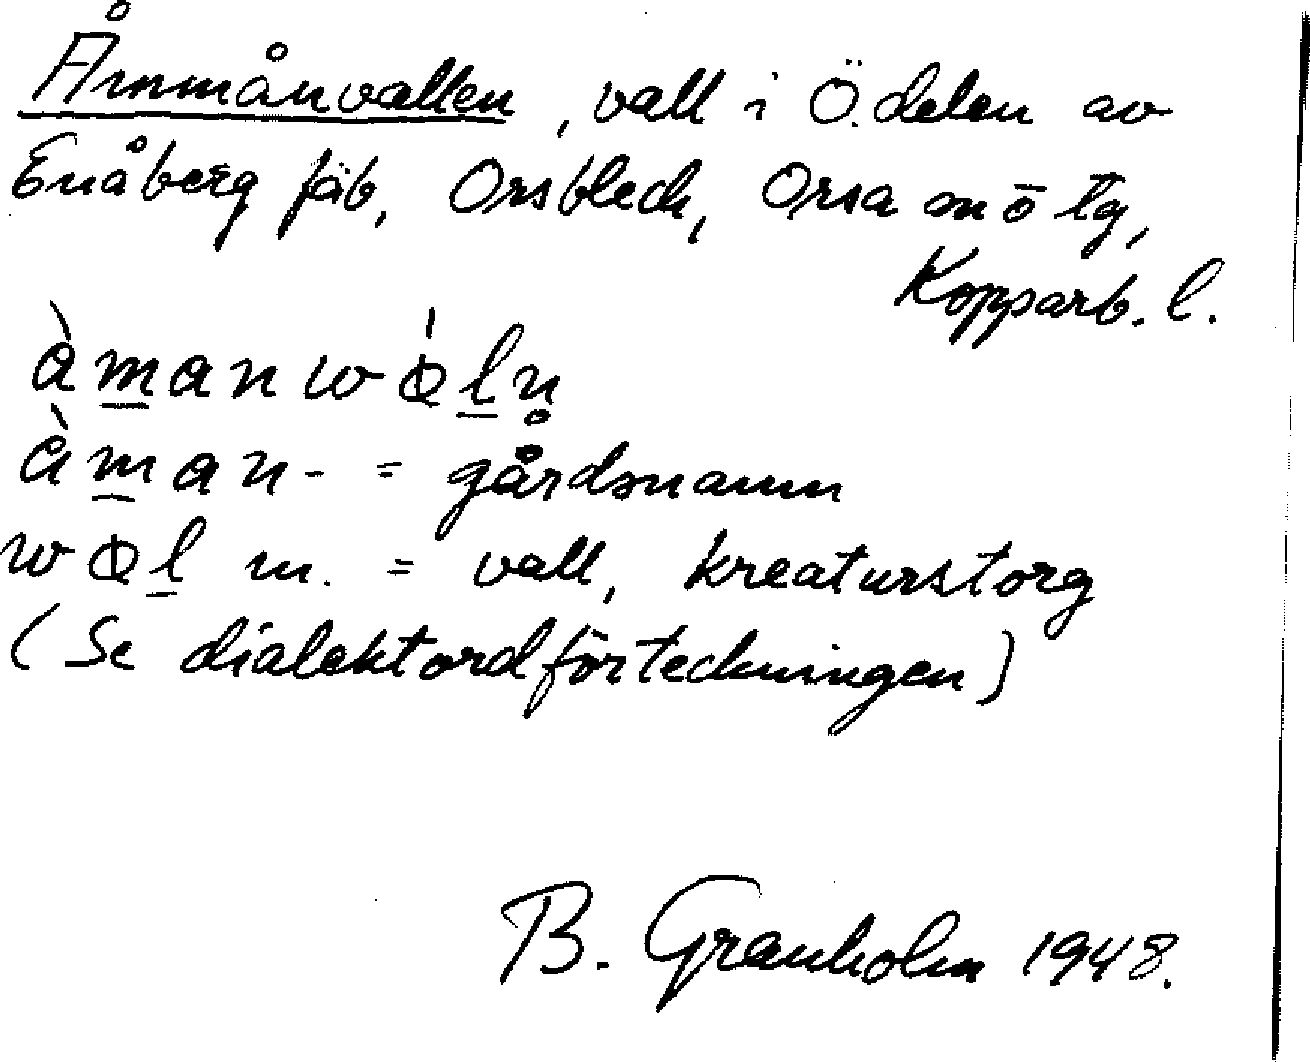 Åmmånvallen, vall i Ö. delen av
Enåberg fäb, Orsblech, Orsa mō tg,
Kopparb. l.
àmanwǫ́ln̥
àman- = gårdsnamn
wǫl m. = vall, kreaturstorg
(Se dialektordförteckningen)
B. Granholm 1948.